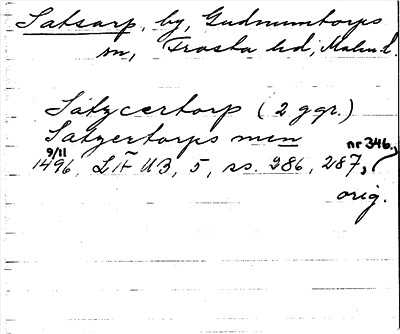 Satsarp, by, Gudmuntorps
sn, Frosta hd, Malm. l.
Satzcertorp (2 ggr.)
Satzertorps men
nr 346.,
9/11
1496, LFU3, 5, ss. 286, 287,
orig.